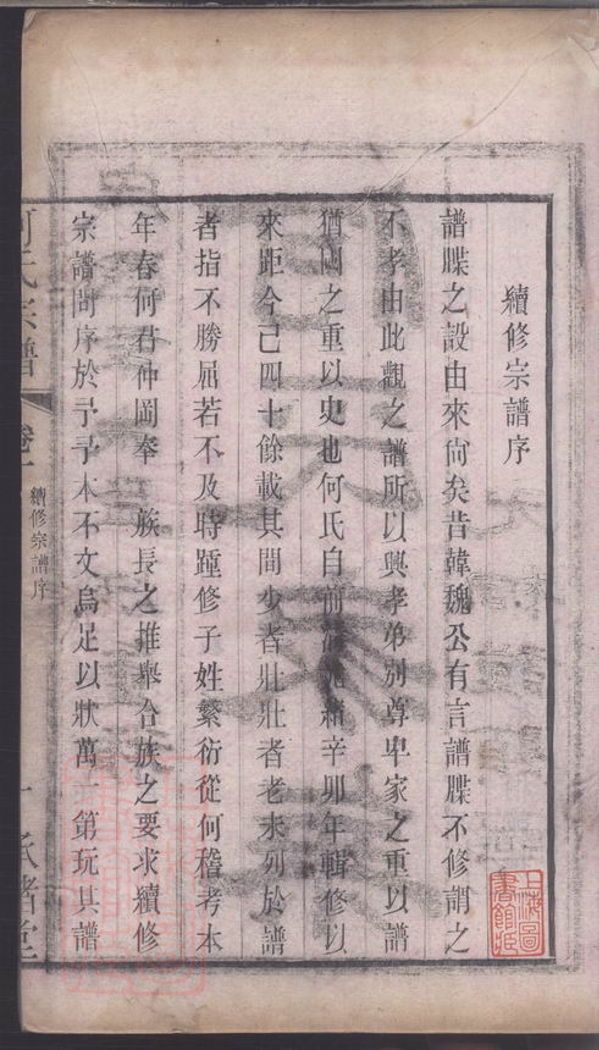 續修宗譜序
譜牒之設由來尙矣昔韓魏公有言譜牒不修謂之
不孝由此觀之譜所以興孝弟別尊卑家之重以譜
猶國之重以史也何氏自前清光緒辛卯年輯修以
來距今已四十餘載其間少者壯壯者老未列於譜
者指不勝屈若不及時踵修子姓繁衍從何稽考本
年春何君仲岡奉 族長之推舉合族之要求續修
宗譜問序於予予本不文烏足以狀萬一第玩其譜
何氏宗譜 卷一 續修宗譜序 一
上海圖書館藏